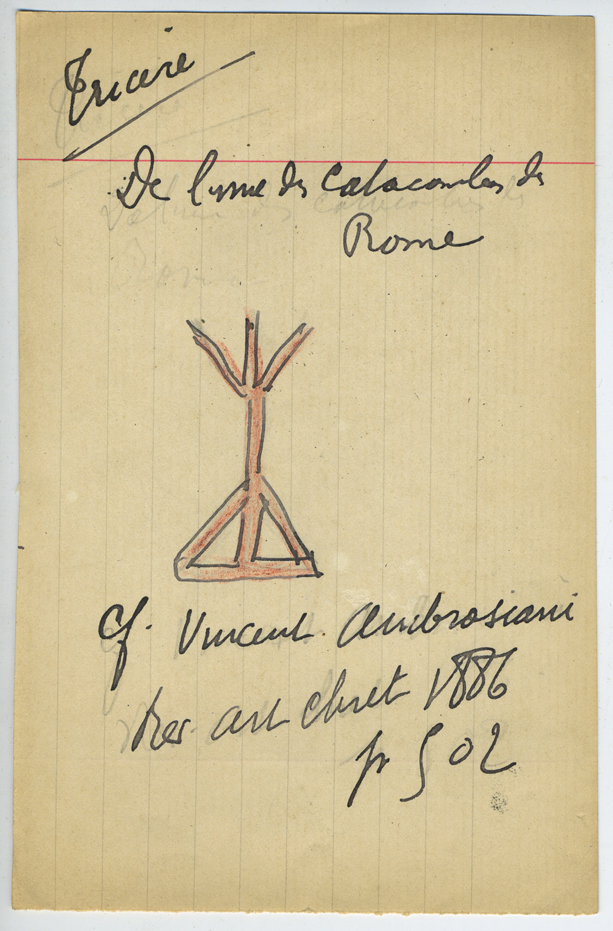 Tricère
De l'une des catacombes de
Rome
Cf. Vincent. Ambrosiani
Rev. art chret 1886
p 502